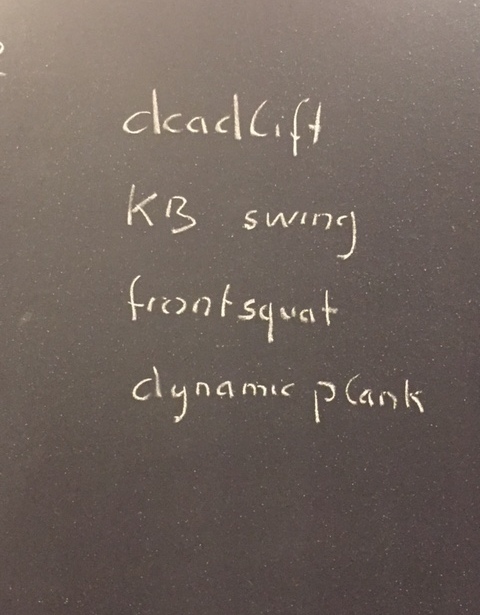 deadlift
KB swing
frontsquat
dynamic plank